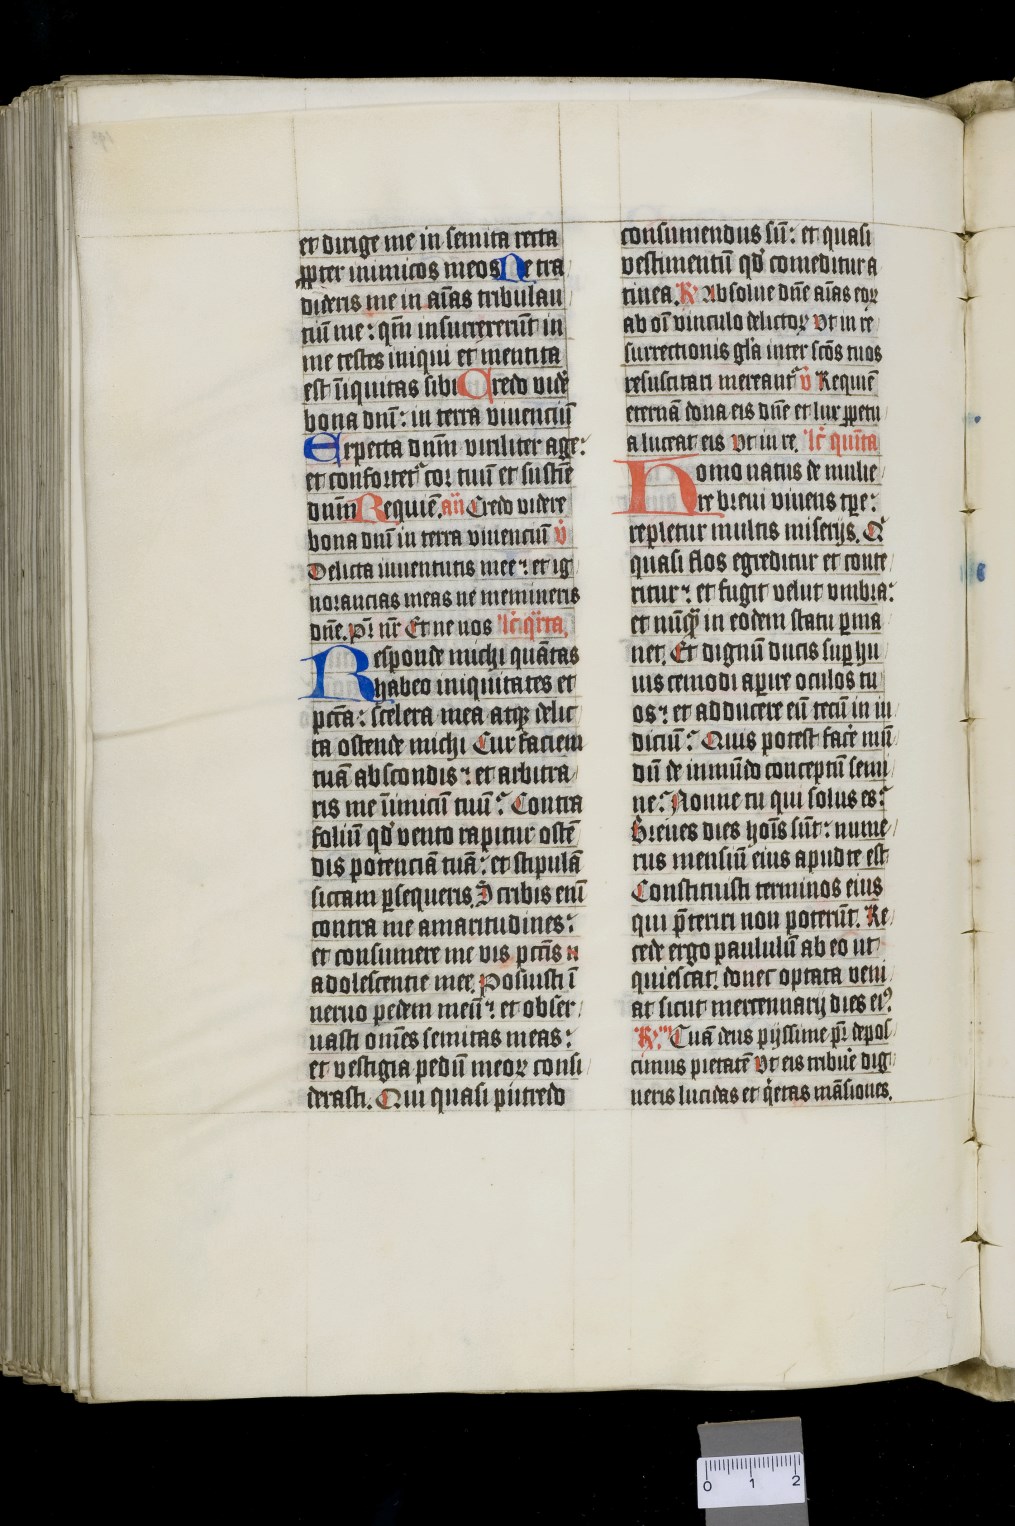 et dirige me in semita recta
ꝓpter inimicos meos Ne tra
dideris me in aīas tribulan
tiū me : qm̄ insurrexerūt in
me testes iniqui et mentita
est īiquitas sibi Credo vidē
bona dn̄i : in terra viuenciū
Expecta dnm̄ viriliter age :
et confortet᷑ cor tuū et sustīe
dnm̄ Requiē. an̄ Credo videre
bona dn̄i in terra viuenciū v̄
Delicta iuuentutis mee : et ig
norancias meas ne memineris
dn̄e. Pr̄ nr̄ Et ne nos lc̄ qͣrta.
Responde michi quātas
habeo iniquitates et
pctā : scelera mea atqꝫ delic
ta ostende michi Cur faciem
tuā abscondis : et arbitra
ris me īimicū tuū : Contra
foliū qd̓ vento rapitur ostē
dis potenciā tuā : et stipulā
siccam ꝑsequeris. Scribis enī
contra me amaritudines :
et consumere me vis pctīs
adolescentie mee. Posuisti ī
neruo pedem meū : et obser
uasti om̄es semitas meas :
et vestigia pedū meoꝝ consi
derasti. Qui quasi putredo
consumendus sū : et quasi
vestimentū qd̓ comeditur a
tinea. ℞ Absolue dn̄e aīas eoꝝ
ab oī vinculo delictoꝝ Vt in re
surrectionis glīa inter scōs tuos
resuscitari mereant᷑ v̄ Requiē
eternā dona eis dn̄e et lux ꝑpetu
a luceat eis Vt in re. lc̄ quīta
Homo natus de mulie
re breui viuens tꝑe :
repletur multis miserijs. Q
quasi flos egreditur et conte
ritur : et fugit velut vmbra :
et nūqꝫ in eodem statu ꝑma
net. Et dignū ducis suꝑ hu
iuscemodi aꝑire oculos tu
os : et adducere eū tecū in iu
diciū : Quis potest facē mū
dū de inmūdo conceptū semi
ne : Nonne tu qui solus es :
Breues dies hoīs sūt : nume
rus mensiū eius apud te est
Constituisti terminos eius
qui p̄teriri non poterūt. Re
cede ergo paululū ab eo ut
quiescat. donec optata veni
at sicut mercennarij dies eiꝰ
℞m Tuā deus pijssime pr̄ depos
cimus pietatē Vt eis tribuē dig
neris lucidas et qͥetas māsiones.